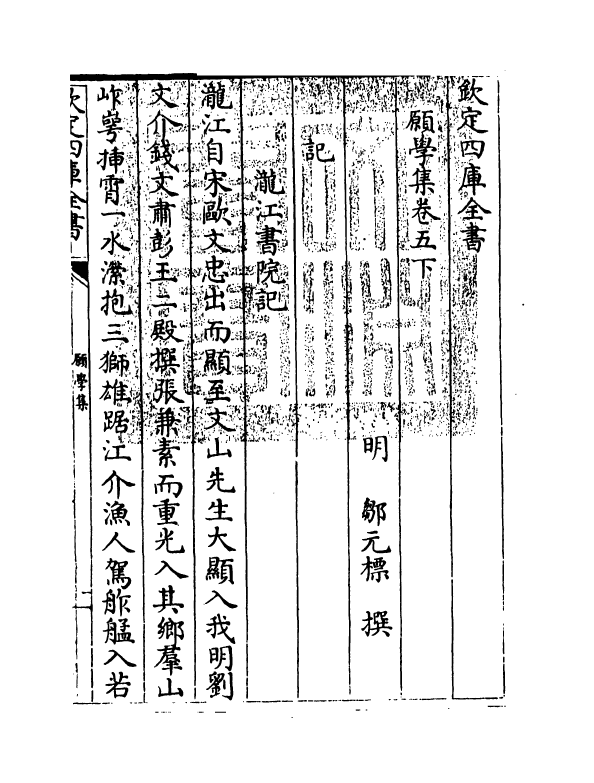 欽定四庫全書
願學集卷五下
明 鄒元標 撰
記
瀧江書院記
瀧江自宋歐文忠出而顯至文山先生大顯入我明劉
文介錢文肅彭王二殿撰張兼素而重光入其鄉羣山
岞崿揷霄一水瀠抱三獅雄踞江介漁人駕舴艋入若
欽定四庫全書
願學集